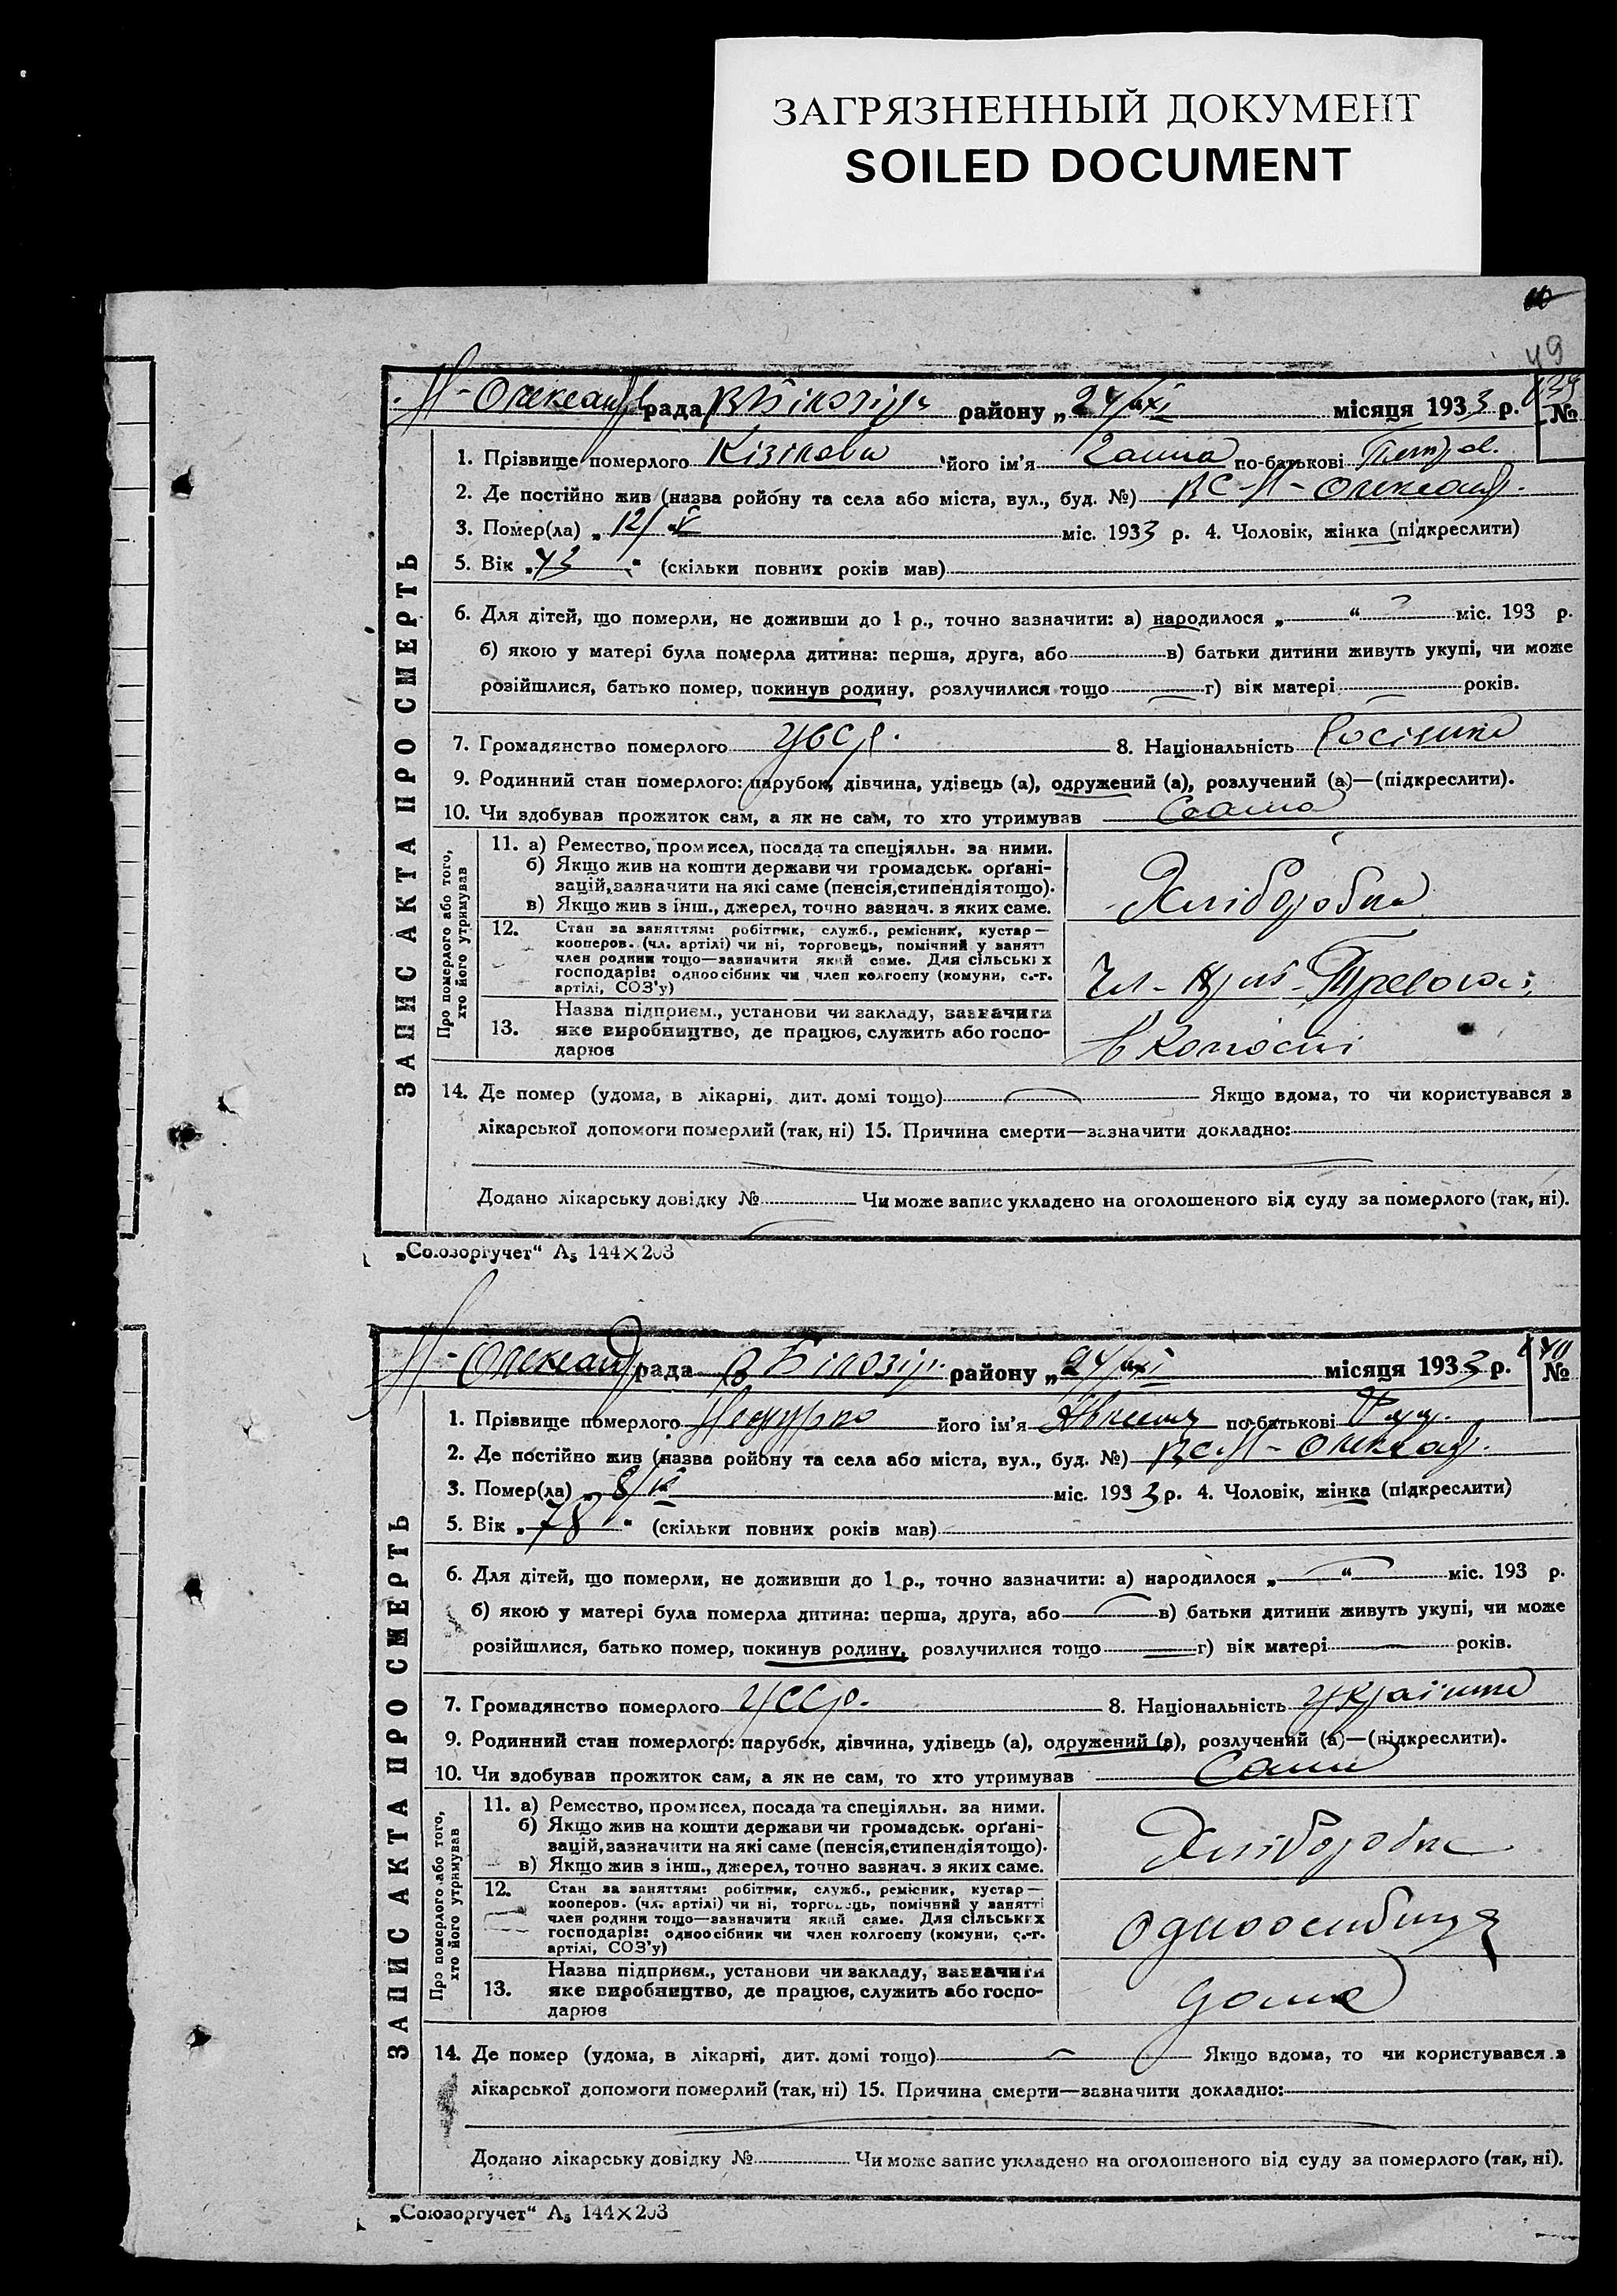 ЗАГРЯЗНЕННЫЙ ДОКУМЕНТ
SOILED DOCUMENT
49
139
Н-Олександ рада В Білозір району „24/XI місяця 1933 р. №
ЗАПИС АКТА ПРО СМЕРТЬ
1. Прізвище померлого його ім'я Ганна по-батькові Петров.
2. Де постійно жив (назва ройону та села або міста, вул., буд. №) Н-Олександ.
3. Помер(ла) „12/V міс. 1933 р. 4. Чоловік, жінка (підкреслити)
5. Вік „43" (скільки повних років мав)
6. Для дітей, що померли, не доживши до 1 р., точно зазначити: а) народилося „ “ міс. 193 р.
б) якою у матері була померла дитина: перша, друга, або в) батьки дитини живуть укупі, чи може
розійшлися, батько помер, покинув родину, розлучилися тощо г) вік матері років.
7. Громадянство померлого УССР. 8. Національність
9. Родинний стан померлого: парубок, дівчина, удівець (а), одружений (а), розлучений (а)—(підкреслити).
10. Чи здобував прожиток сам, а як не сам, то хто утримував Сама
Про померлого або того,
хто його утримував
11. а) Ремество, промисел, посада та спеціяльн. за ними.
б) Якщо жив на кошти держави чи громадськ. орґані-
зацій, зазначити на які саме (пенсія, стипендія тощо).
в) Якщо жив з інш., джерел, точно зазнач. з яких саме.
Хліборобка
12. Стан за заняттям: робітник, служб., ремісник, кустар—
кооперов. (чл. артілі) чи ні, торговець, помічний у занятті
член родини тощо—зазначити який саме. Для сільських
господарів: одноосібник чи член колгоспу (комуни, с.-г.
артілі, СОЗ'у)
13. Назва підприєм., установи чи закладу, зазначити
яке виробництво, де працює, служить або госпо-
дарює
в колгоспі
14. Де помер (удома, в лікарні, дит. домі тощо) Якщо вдома, то чи користувався з
лікарської допомоги померлий (так, ні) 15. Причина смерти—зазначити докладно:
Додано лікарську довідку № Чи може запис укладено на оголошеного від суду за померлого (так, ні).
„Союзоргучет“ А₅ 144×203
140
Н-Олександ рада В Білозір. району „24/XI місяця 1933 р. №
ЗАПИС АКТА ПРО СМЕРТЬ
1. Прізвище померлого його ім'я по-батькові
2. Де постійно жив (назва ройону та села або міста, вул., буд. №) Н-Олександ.
3. Помер(ла) міс. 1933 р. 4. Чоловік, жінка (підкреслити)
5. Вік „78" (скільки повних років мав)
6. Для дітей, що померли, не доживши до 1 р., точно зазначити: а) народилося „ “ міс. 193 р.
б) якою у матері була померла дитина: перша, друга, або в) батьки дитини живуть укупі, чи може
розійшлися, батько помер, покинув родину, розлучилися тощо г) вік матері років.
7. Громадянство померлого УССР. 8. Національність Українка
9. Родинний стан померлого: парубок, дівчина, удівець (а), одружений (а), розлучений (а)—(підкреслити).
10. Чи здобував прожиток сам, а як не сам, то хто утримував Сама
Про померлого або того,
хто його утримував
11. а) Ремество, промисел, посада та спеціяльн. за ними.
б) Якщо жив на кошти держави чи громадськ. орґані-
зацій, зазначити на які саме (пенсія, стипендія тощо).
в) Якщо жив з інш., джерел, точно зазнач. з яких саме.
Хліборобка
12. Стан за заняттям: робітник, служб., ремісник, кустар—
кооперов. (чл. артілі) чи ні, торговець, помічний у занятті
член родини тощо—зазначити який саме. Для сільських
господарів: одноосібник чи член колгоспу (комуни, с.-г.
артілі, СОЗ'у)
одноосибниця
13. Назва підприєм., установи чи закладу, зазначити
яке виробництво, де працює, служить або госпо-
дарює
дома
14. Де помер (удома, в лікарні, дит. домі тощо) Якщо вдома, то чи користувався з
лікарської допомоги померлий (так, ні) 15. Причина смерти—зазначити докладно:
Додано лікарську довідку № Чи може запис укладено на оголошеного від суду за померлого (так, ні).
„Союзоргучет“ А₅ 144×203